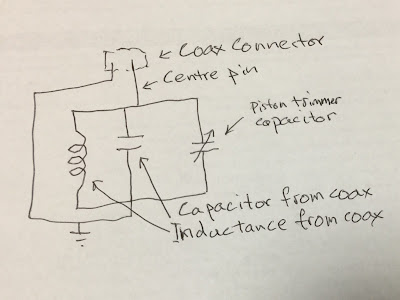 Coax Connector
Centre pin
Piston trimmer
capacitor
Capacitor from coax
Inductance from coax